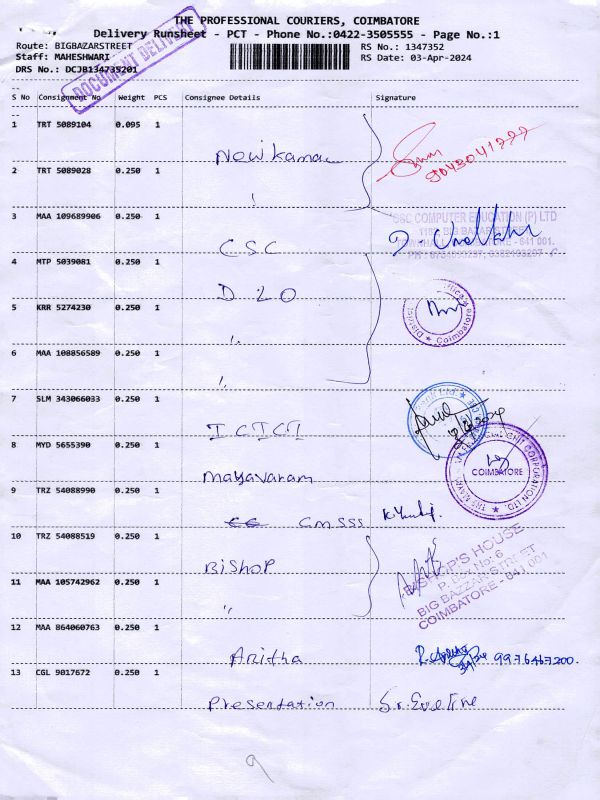 THE PROFESSIONAL COURIERS, COIMBATORE
Delivery Runsheet - PCT - Phone No.:0422-3505555 - Page No.:1
Route: BIGBAZARSTREET RS No.: 1347352
Staff: MAHESHWARI RS Date: 03-Apr-2024
DRS No.: DCJB134735201
DOCUMENT DELIVERY
S No Consignment No Weight PCS Consignee Details Signature
1 TRT 5089104 0.095 1
New kamal
9043041777
2 TRT 5089028 0.250 1
"
3 MAA 109689906 0.250 1
CSC
CSC COMPUTER EDUCATION (P) LTD
BIG BAZAAR STREET
COIMBATORE - 641 001.
4 MTP 5039081 0.250 1
D 20
5 KRR 5274230 0.250 1
"
Coimbatore
6 MAA 108856589 0.250 1
"
7 SLM 343066033 0.250 1
ICICI
8 MYD 5655390 0.250 1
mayavaram
CHIT CORPORATION LTD.
COIMBATORE
9 TRZ 54088990 0.250 1
CMSSS
10 TRZ 54088519 0.250 1
BISHOP
BISHOP'S HOUSE
P. Box No: 6
BIG BAZZAR STREET
COIMBATORE - 641 001
11 MAA 105742962 0.250 1
"
12 MAA 864060763 0.250 1
Anitha
9976467200.
13 CGL 9017672 0.250 1
Presentation Sr. Eveline
9